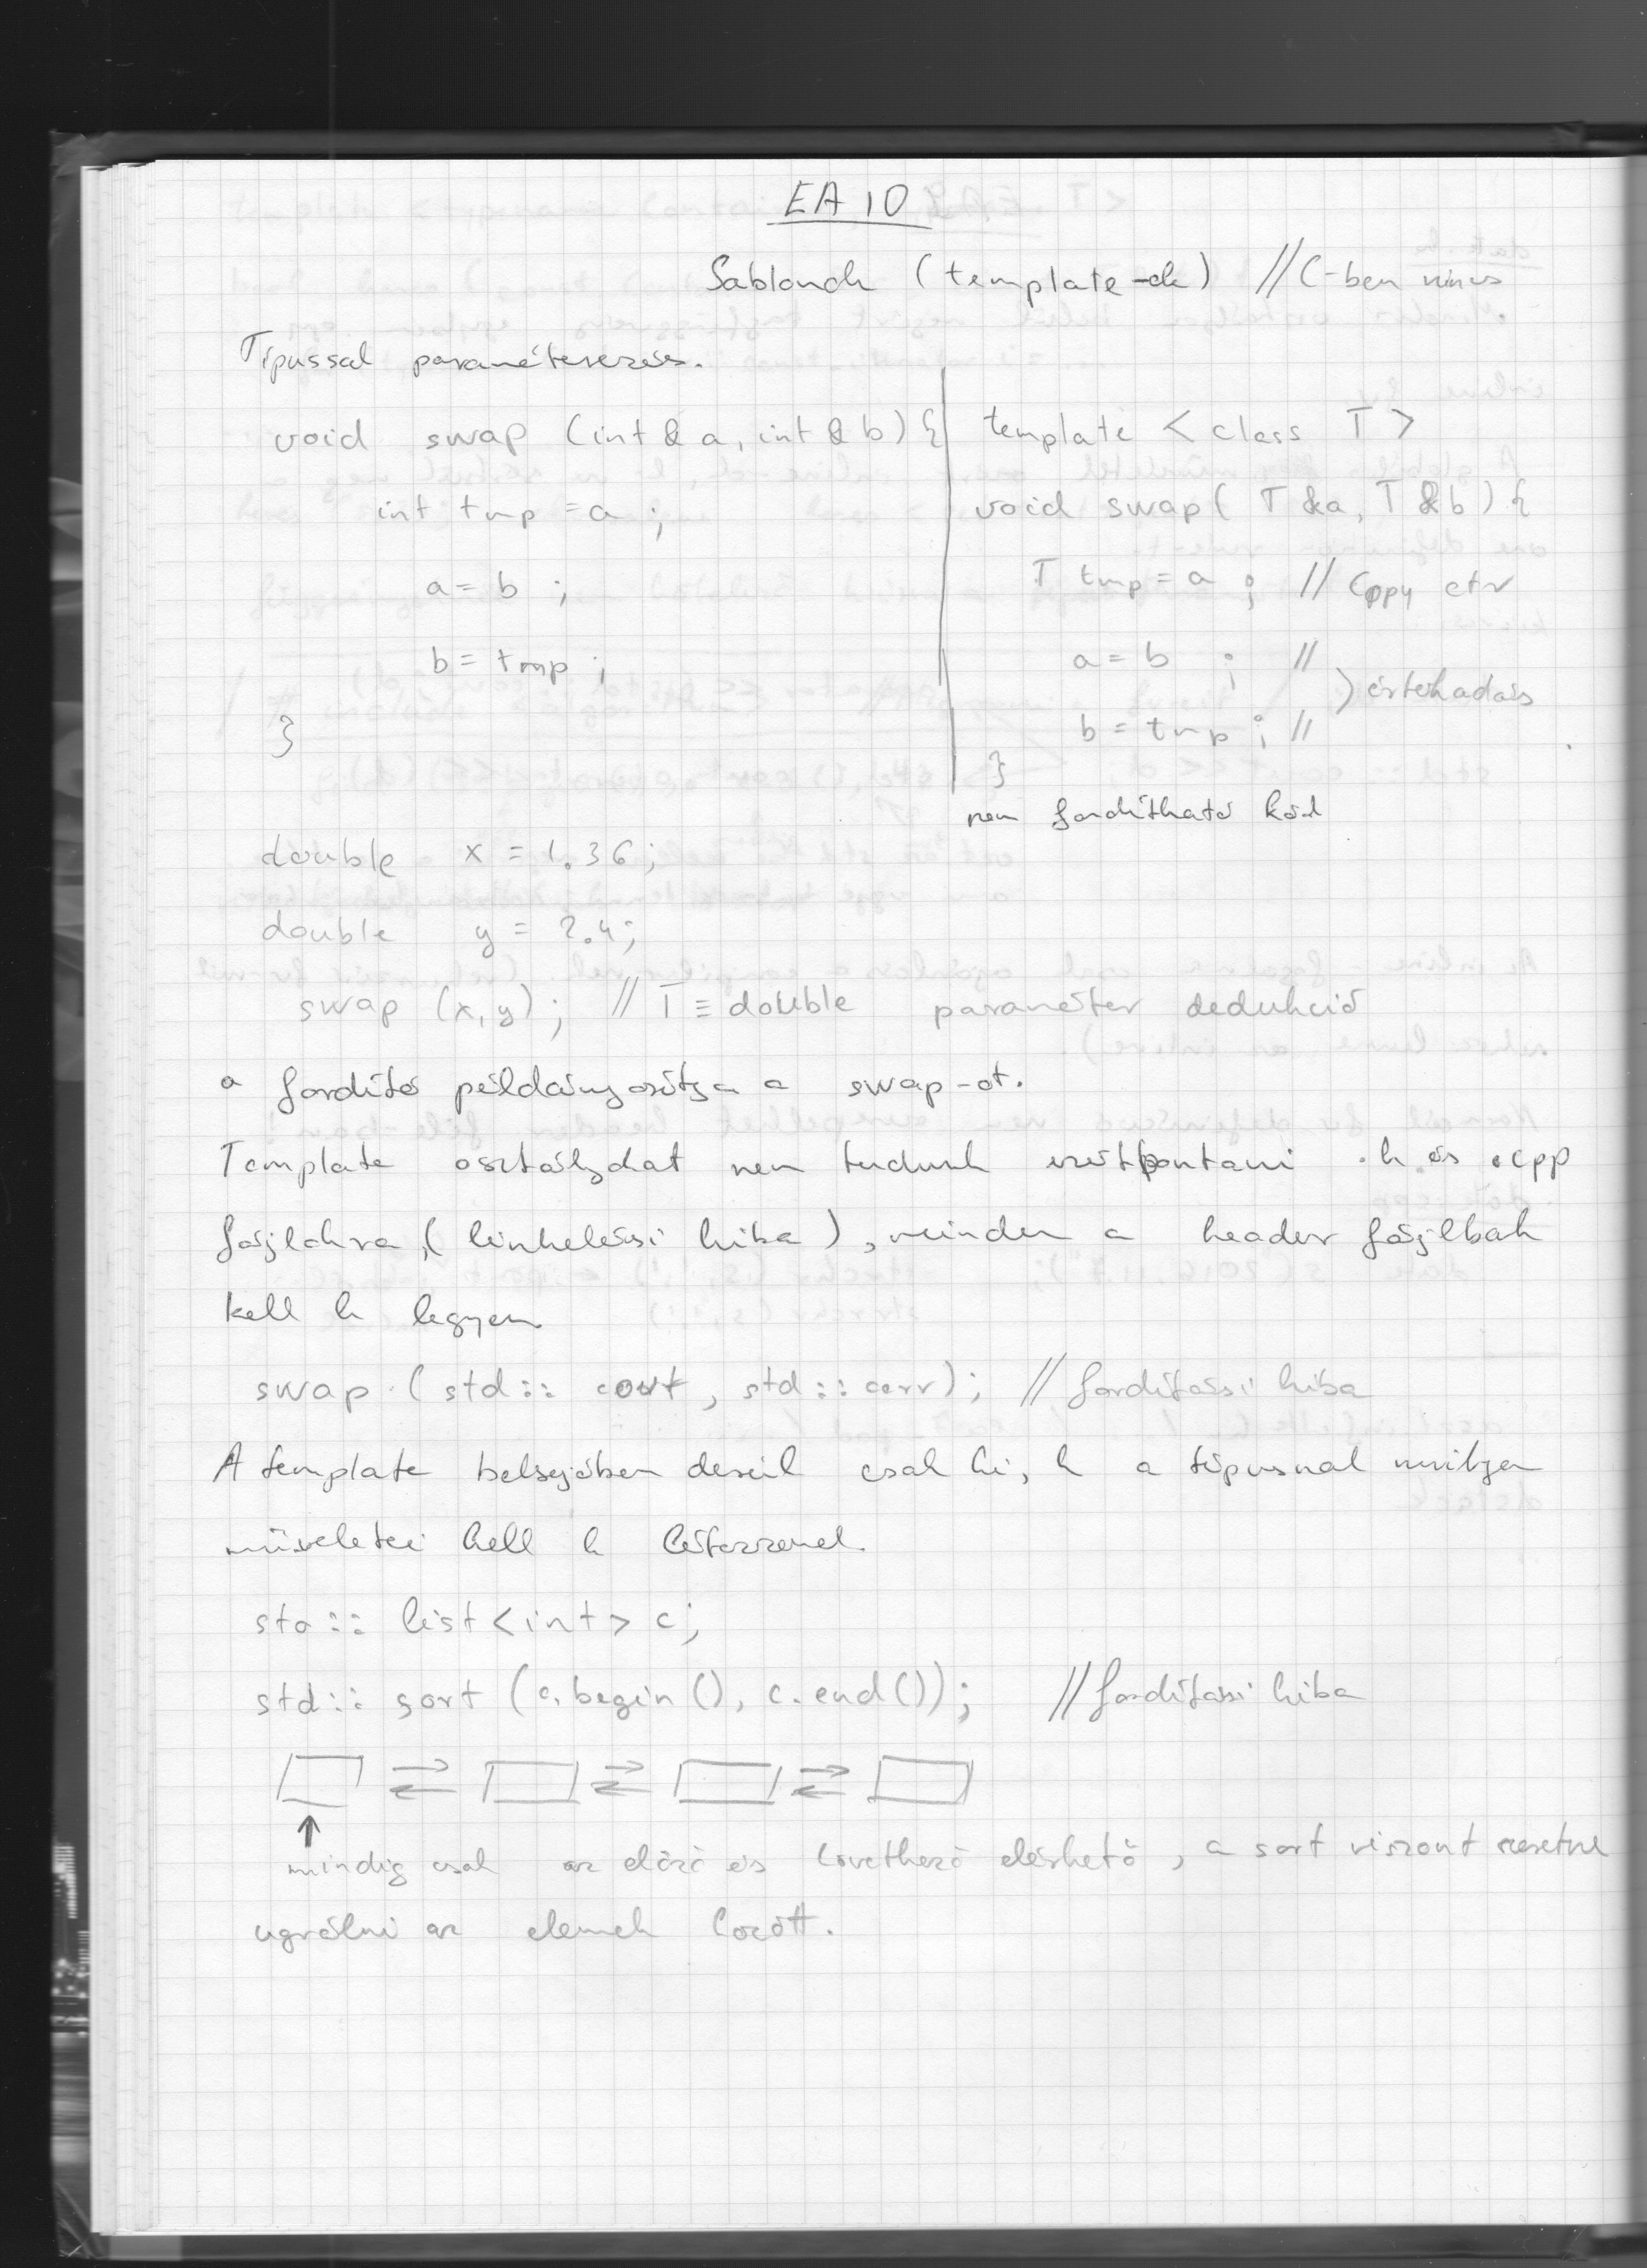 EA 10
Sablonok (template-ek) // C-ben nincs
Típussal paraméterezés.
void swap (int & a, int & b) {
int tmp = a ;
a = b ;
b = tmp ;
}
template < class T >
void swap( T &a, T & b ) {
T tmp = a ; // Copy ctr
a = b ; //
) értékadás
b = tmp ; //
}
nem fordítható kód
double x = 1.36;
double y = 2.4;
swap (x, y) ; // T ≡ double paraméter dedukció
a fordító példányosítja a swap-ot.
Template osztályokat nem tudunk szétbontani .h és .cpp
fájlokra, ( linkelési hiba ), minden a header fájlban
kell h legyen
swap ( std :: cout , std :: cerr) ; // fordítási hiba
A template belsejében derül csak ki, h a típusnak milyen
műveletei kell h létezzenek.
std :: list < int > c;
std :: sort (c.begin (), c.end ()) ; // fordítási hiba
mindig csak az előző és következő elérhető , a sort viszont szeretne
ugrálni az elemek között.